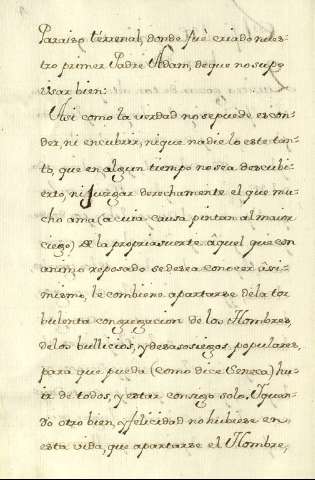 Paraiso terrenal, donde fuè criado nues-
tro primer Padre Adam, de que no supo
usar bien:
Asi como la verdad no se puede escon-
der, ni encubrir, ni que nadie lo este tan-
to, que en algun tiempo no sea descubi-
erto, ni juzgar derechamente el que mu-
cho ama (a cuia causa pintan al maior
ciego) de la propria suerte âquel que con
animo reposado se desea conocer âsi-
mismo, le combiene apartarse de la tor
bulenta congregacion de los Hombres,
de los bullicios, y desasosiegos populares,
para que pueda (como dice Seneca) hu-
ir de todos, y estar consigo solo. Y quan-
do otro bien, y felicidad no hubiese en
esta vida, que apartarse el Hombre,